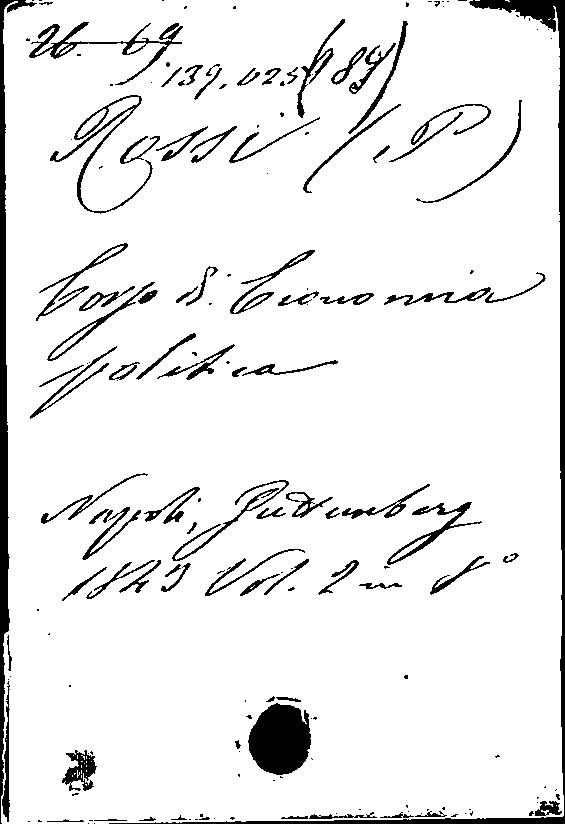 26. 69
139.025 (89)
Rossi (P)
Corso di Economia
politica
Napoli, Guttunberg
1843 Vol. 2 in 8°